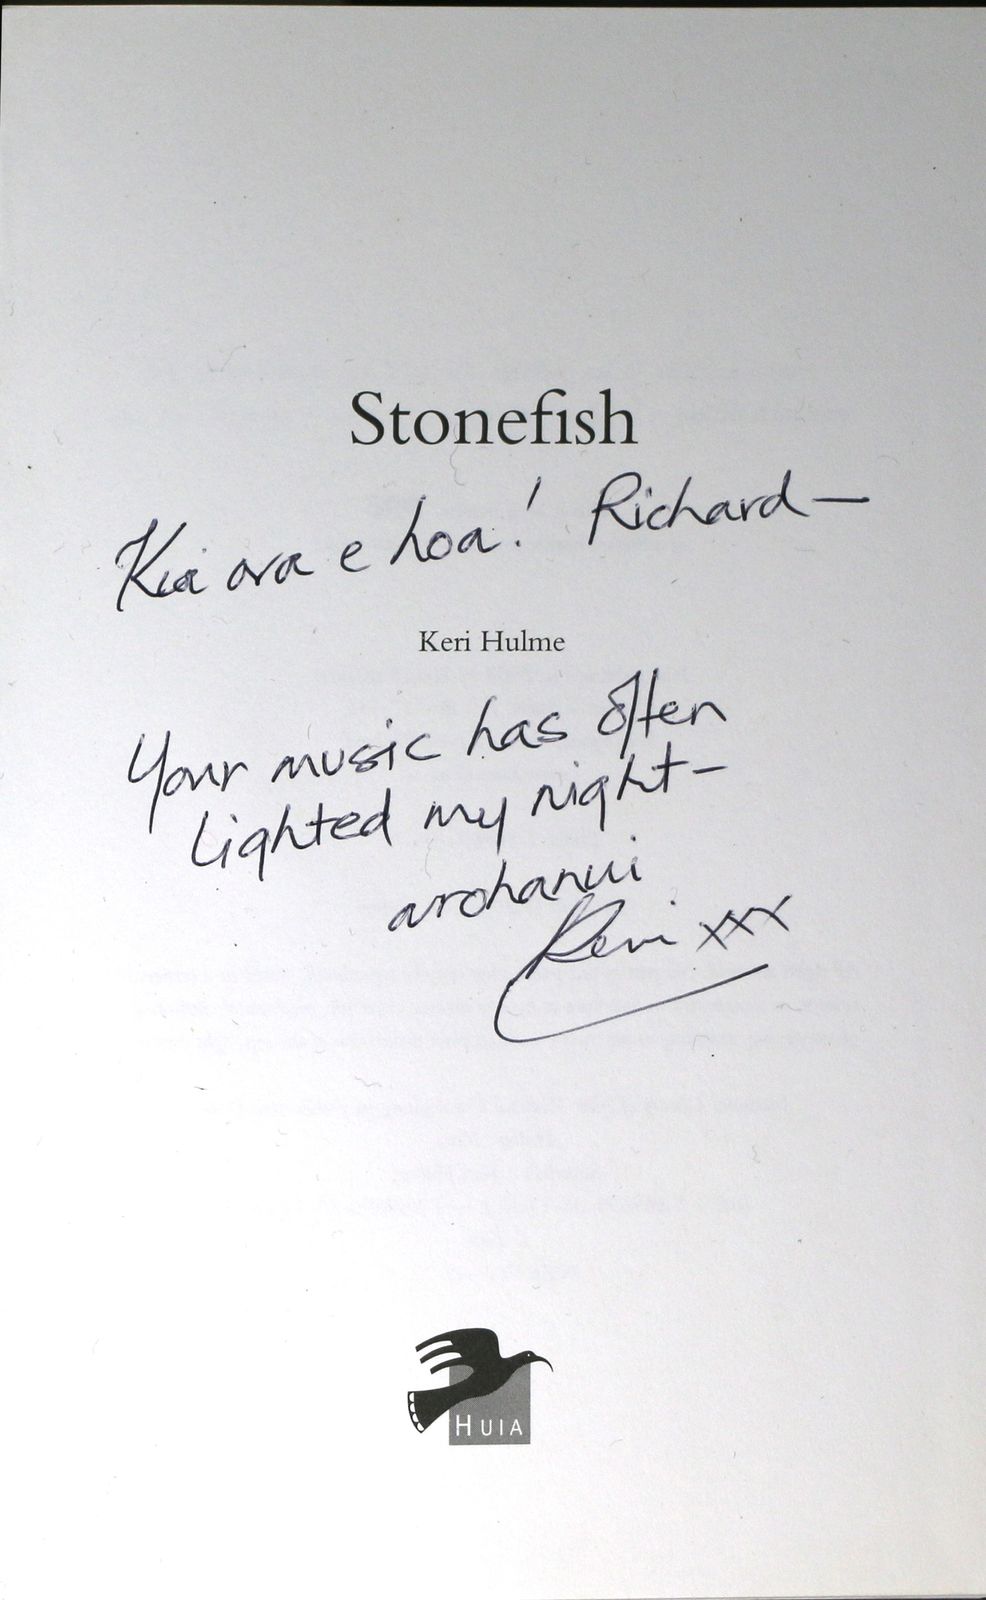 Stonefish
Kia ora e hoa! Richard —
Keri Hulme
Your music has often
lighted my night —
arohanui
Keri xxx
HUIA